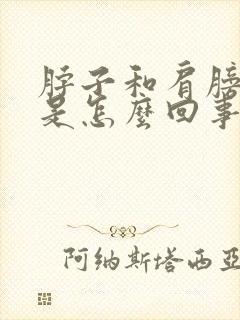 脖子和肩膀
是怎麽回事
阿纳斯塔西亚